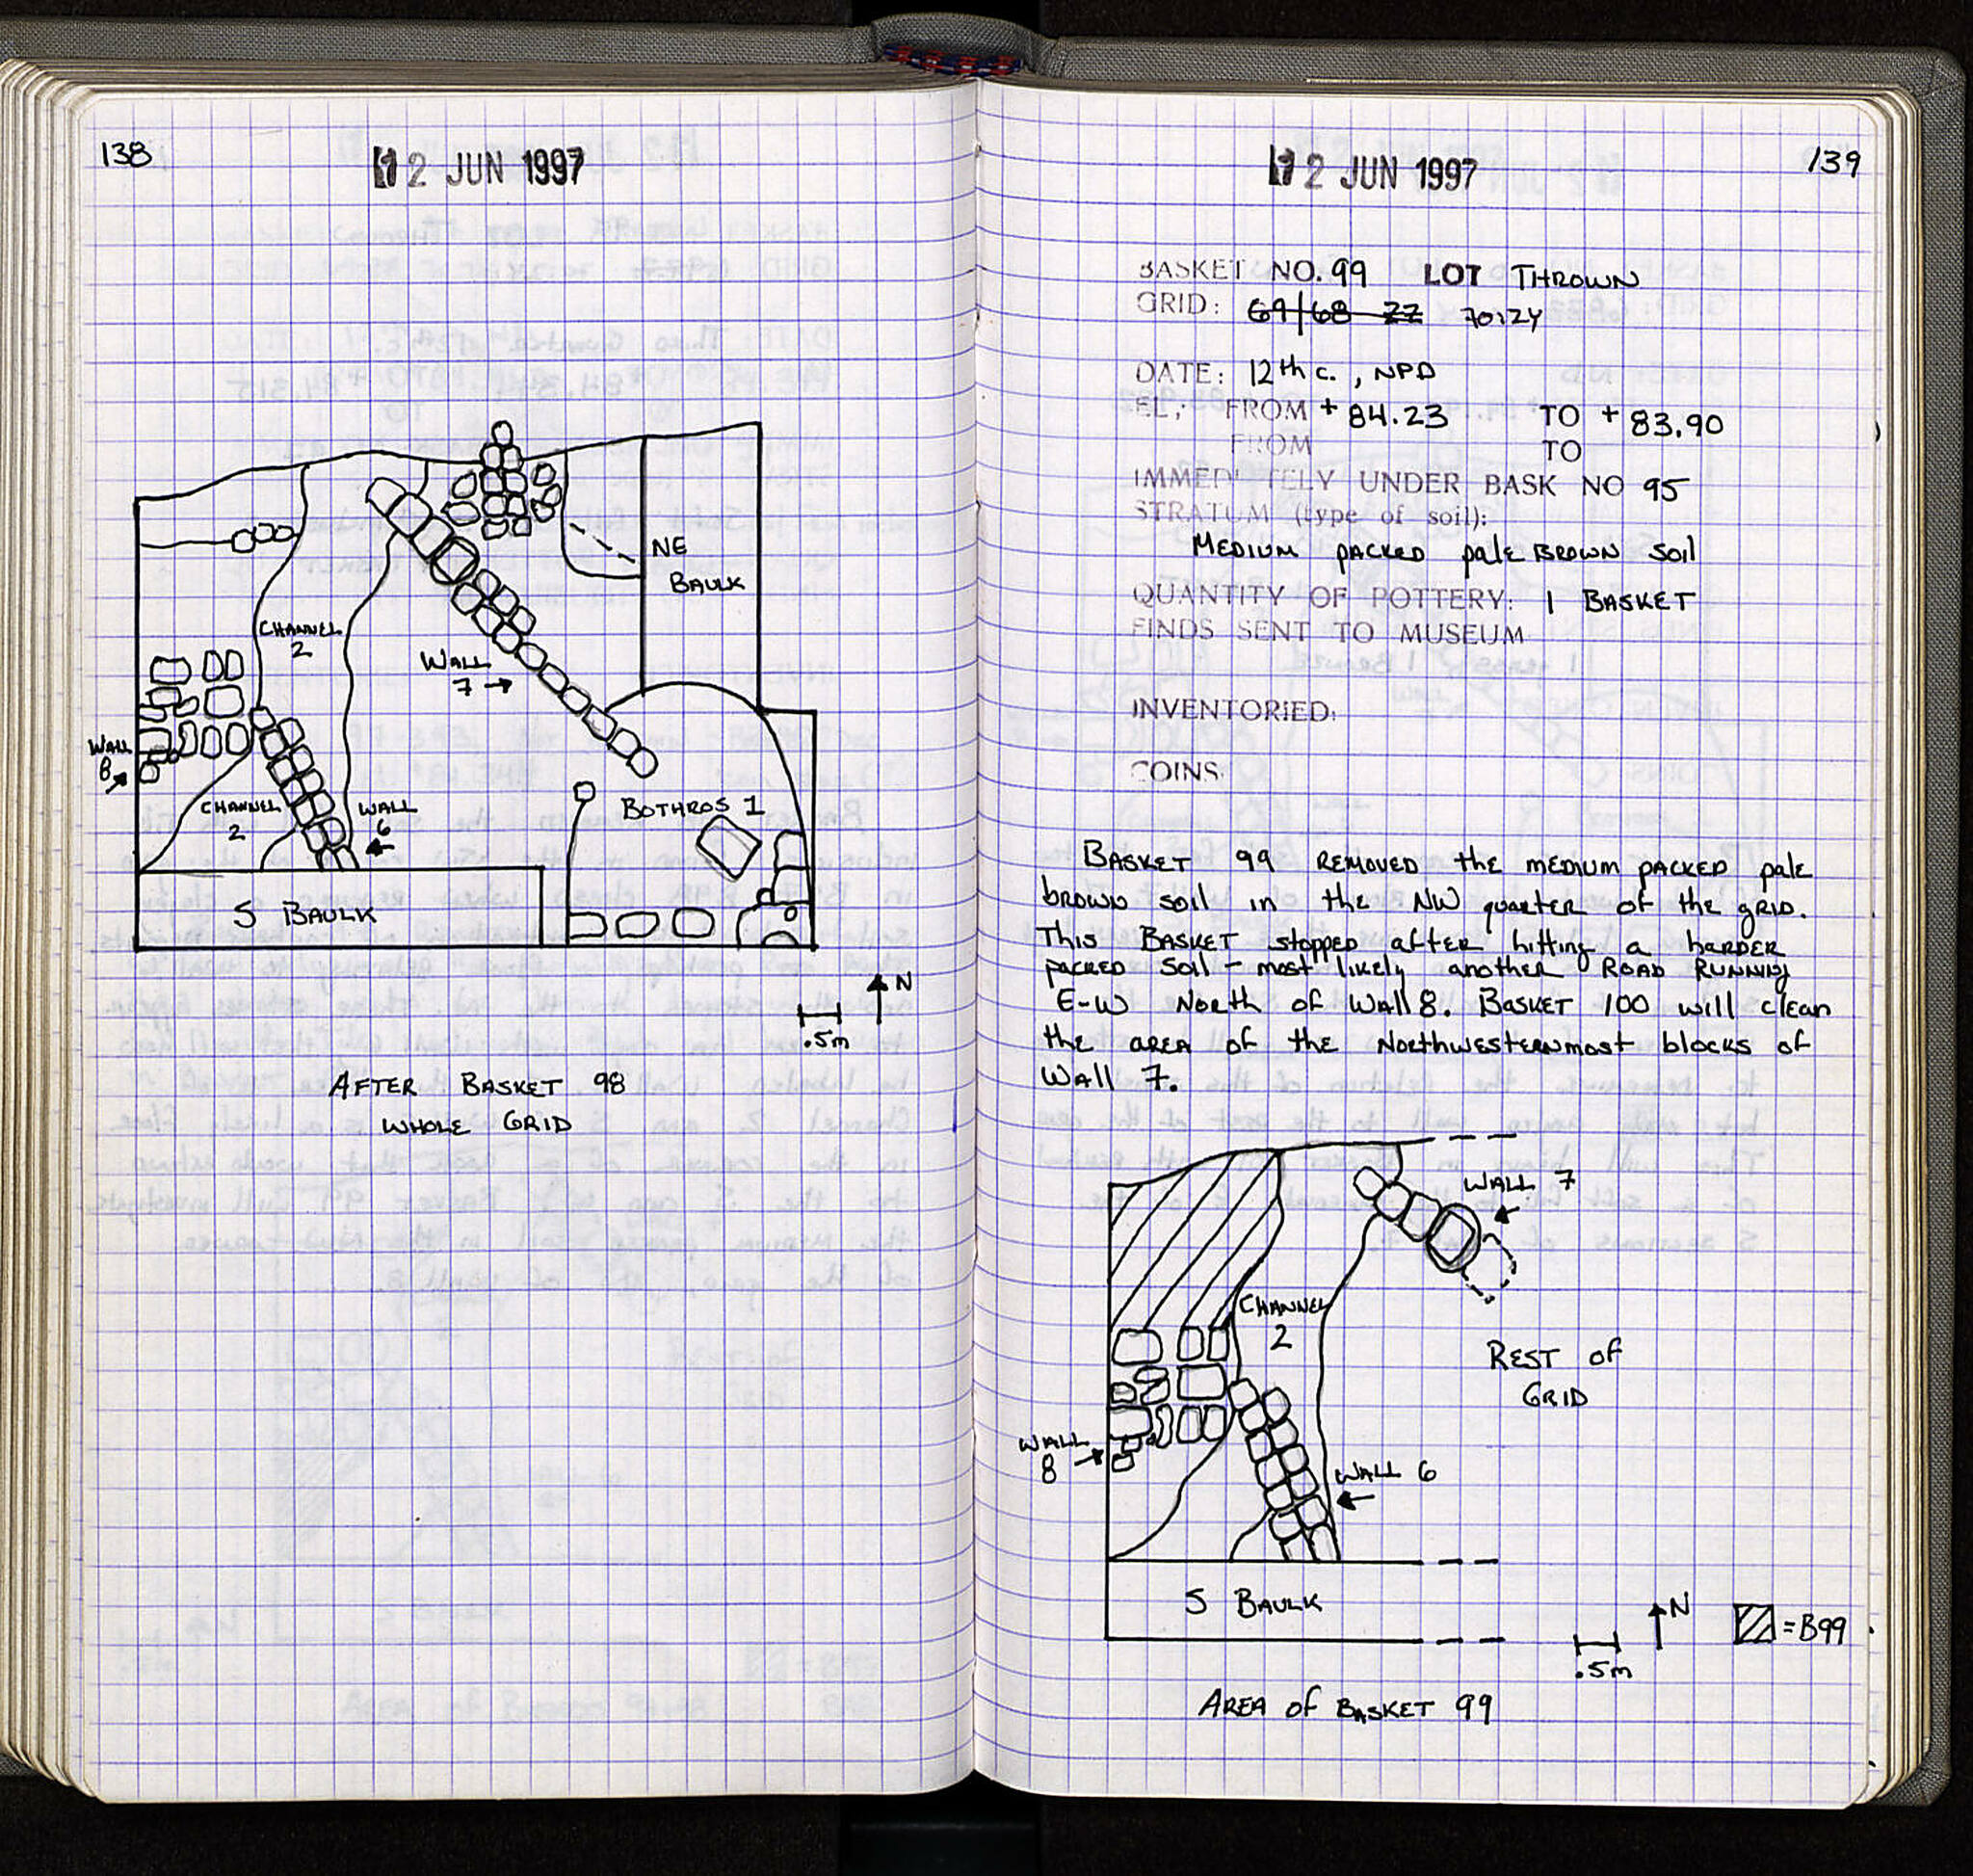 138
12 JUN 1997
NE
BAULK
CHANNEL
2
WALL
7 →
WALL
8
CHANNEL
2
WALL
6
BOTHROS 1
S BAULK
N
.5m
AFTER BASKET 98
WHOLE GRID
12 JUN 1997
139
BASKET NO. 99 LOT THROWN
GRID: 69/68 ZZ 70:ZY
DATE: 12th c., NPD
EL; FROM +84.23 TO +83.90
FROM TO
IMMEDI TELY UNDER BASK NO 95
STRATUM (type of soil):
MEDIUM PACKED pale BROWN Soil
QUANTITY OF POTTERY: 1 BASKET
FINDS SENT TO MUSEUM
INVENTORIED:
COINS
BASKET 99 REMOVED the MEDIUM PACKED pale
brown soil in the NW quarter of the grid.
This BASKET stopped after hitting a harder
packed soil - most likely another ROAD RUNNING
E-W North of Wall 8. BASKET 100 will clean
the AREA of the Northwesternmost blocks of
Wall 7.
WALL 7
CHANNEL
2
REST of
GRID
WALL
8 →
WALL 6
S BAULK
N
.5m
=B99
AREA of BASKET 99